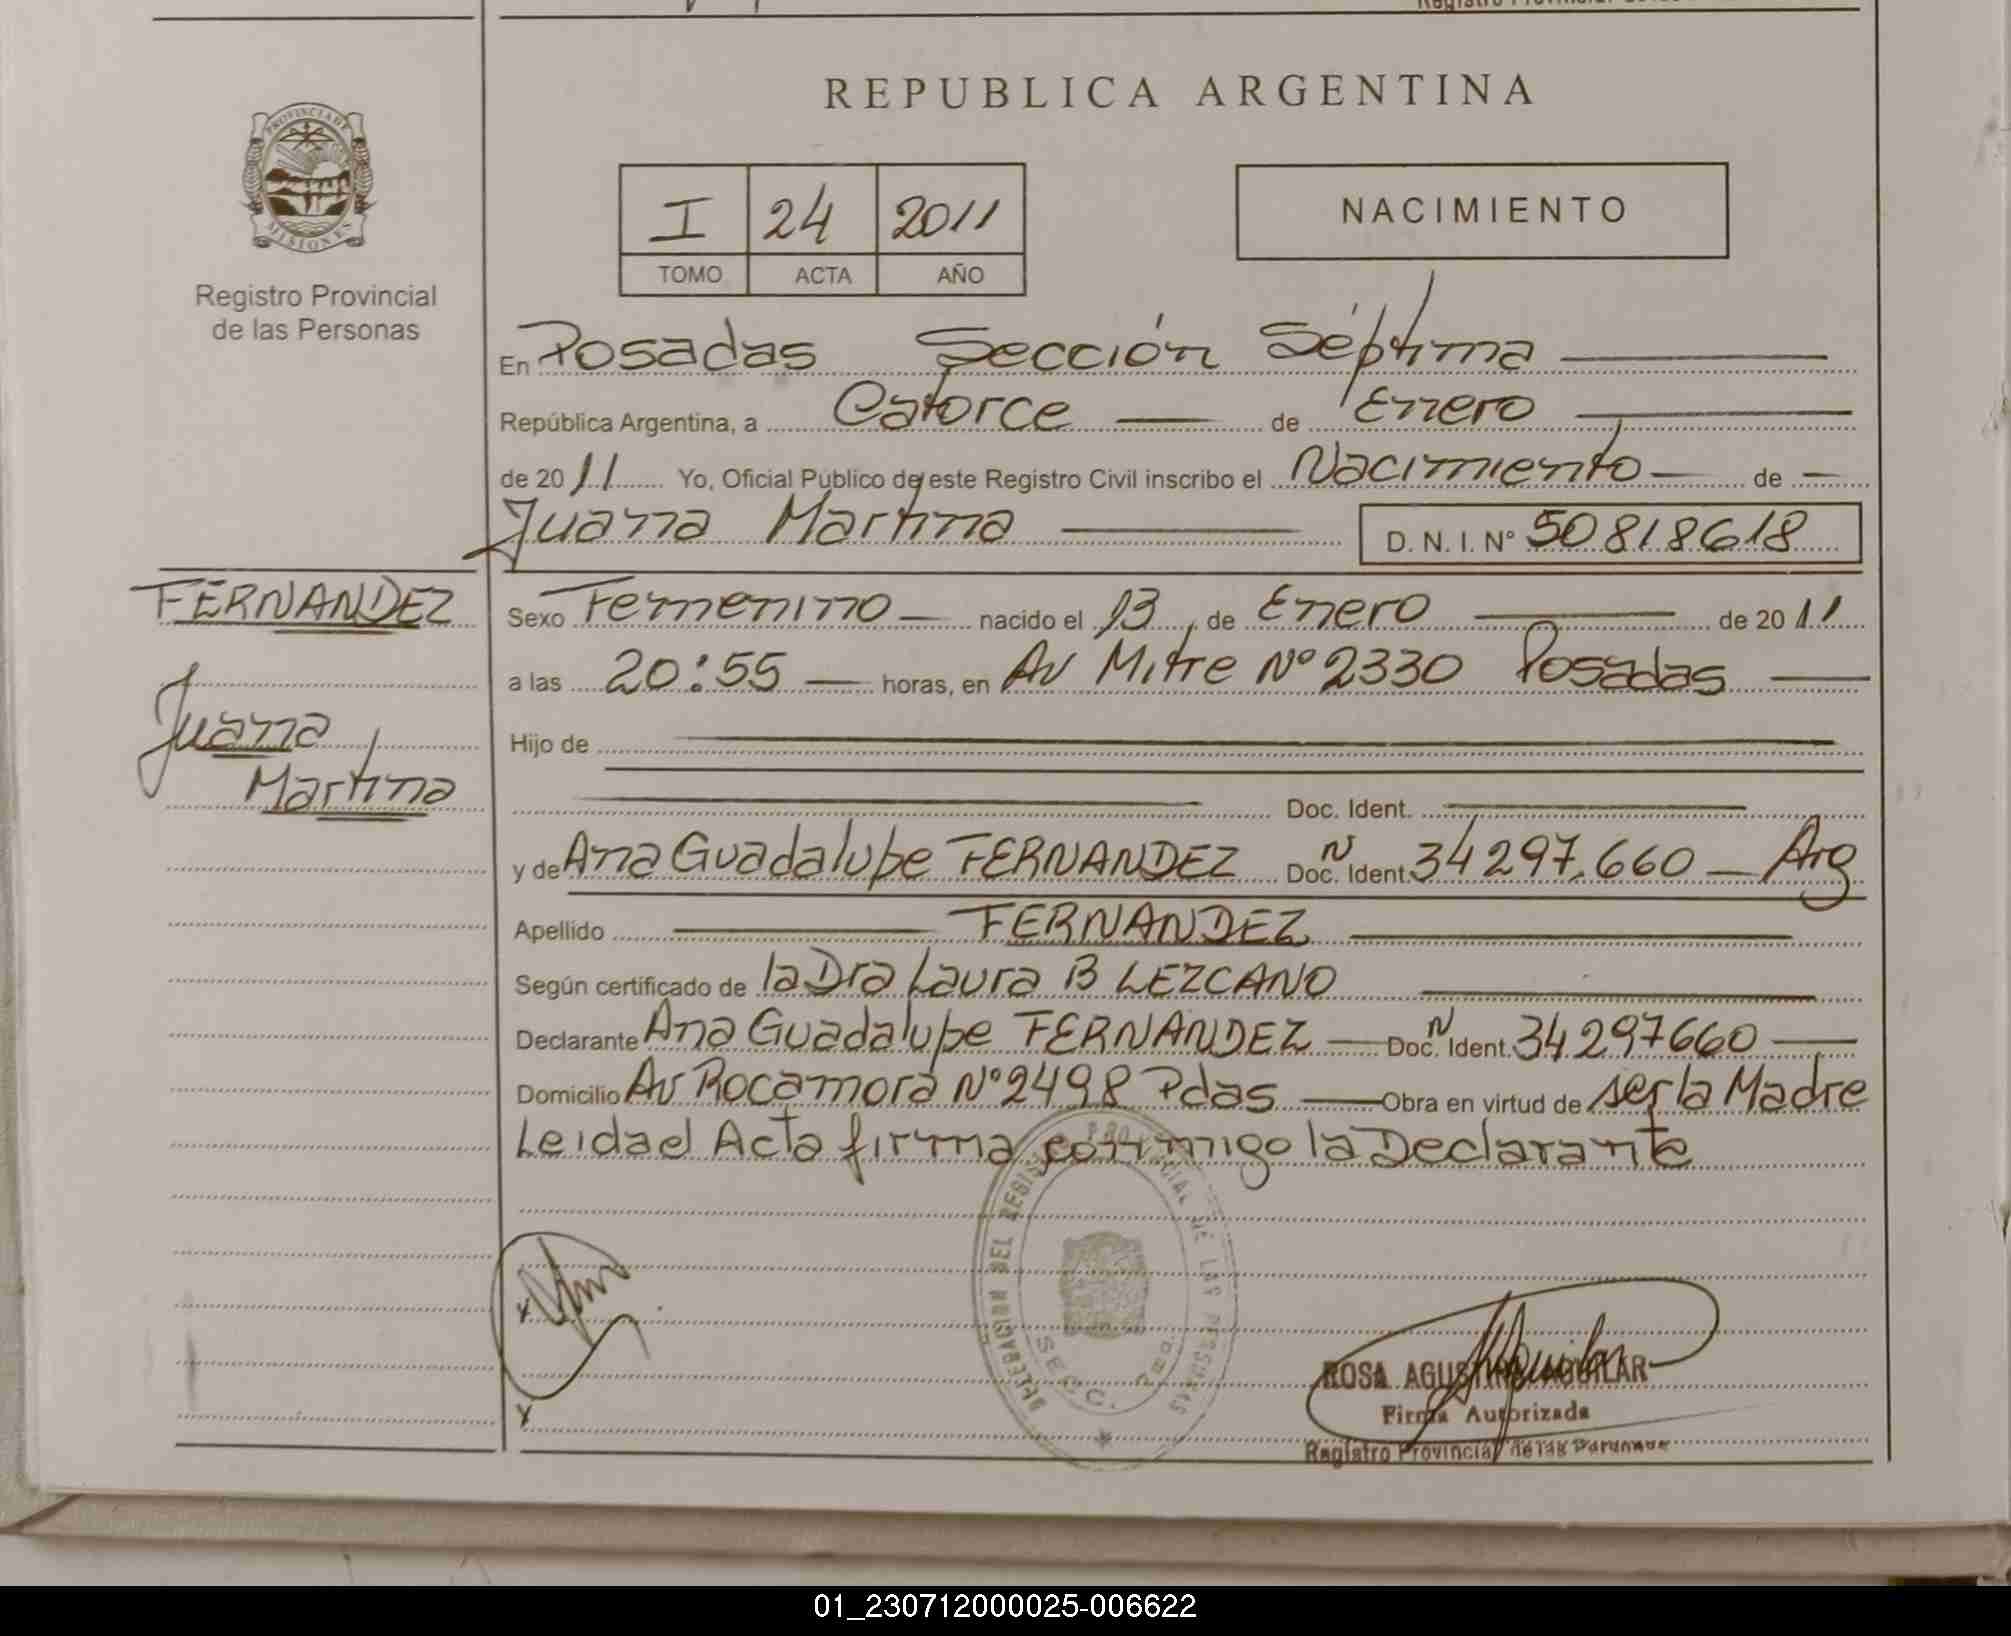 REPUBLICA ARGENTINA
PROVINCIA DE
MISIONES
Registro Provincial
de las Personas
I 24 2011
TOMO ACTA AÑO
NACIMIENTO
En Posadas Sección Séptima
República Argentina, a Catorce de Enero
de 20 11 Yo, Oficial Público de este Registro Civil inscribo el Nacimiento de
Juana Martina D. N. I. N° 50818618
FERNANDEZ
Juana
Martina
Sexo Femenino nacido el 13 de Enero de 20 11
a las 20:55 horas, en Av Mitre N° 2330 Posadas
Hijo de
Doc. Ident.
y de Ana Guadalupe FERNANDEZ Doc. N Ident. 34297.660 Arg
Apellido FERNANDEZ
Según certificado de la Dra Laura B LEZCANO
Declarante Ana Guadalupe FERNANDEZ Doc. N Ident. 34297660
Domicilio Av Rocamora N° 2498 Pdas Obra en virtud de ser la Madre
Leidael Acta firma conmigo la Declarante
DELEGACION DEL REGISTRO PROVINCIAL DE LAS PERSONAS
SECC. 7ma
ROSA AGUSTINA AGUILAR
Firma Autorizada
Registro Provincial de las Personas
01_230712000025-006622